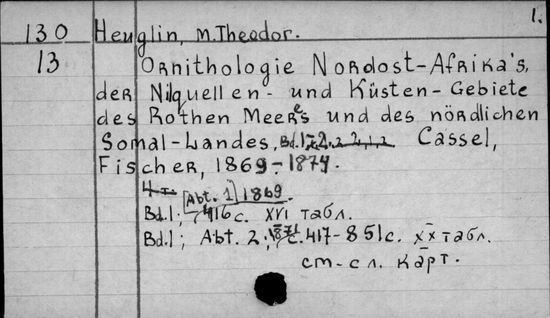 1.
130 Heuglin, M. Theodor.
13 Ornithologie Nordost-Afrika's,
der Nilquellen- und Küsten-Gebiete
des Rothen Meeres und des nördlichen
Somal-Landes, Bd. 1-2. Cassel,
Fischer, 1869-1874.
[Abt. 1] 1869.
Bd. 1; 416 с. XVI табл.
Bd. 1; Abt. 2. 1871 с. 417-851 с. XX табл.
см. сл. карт.